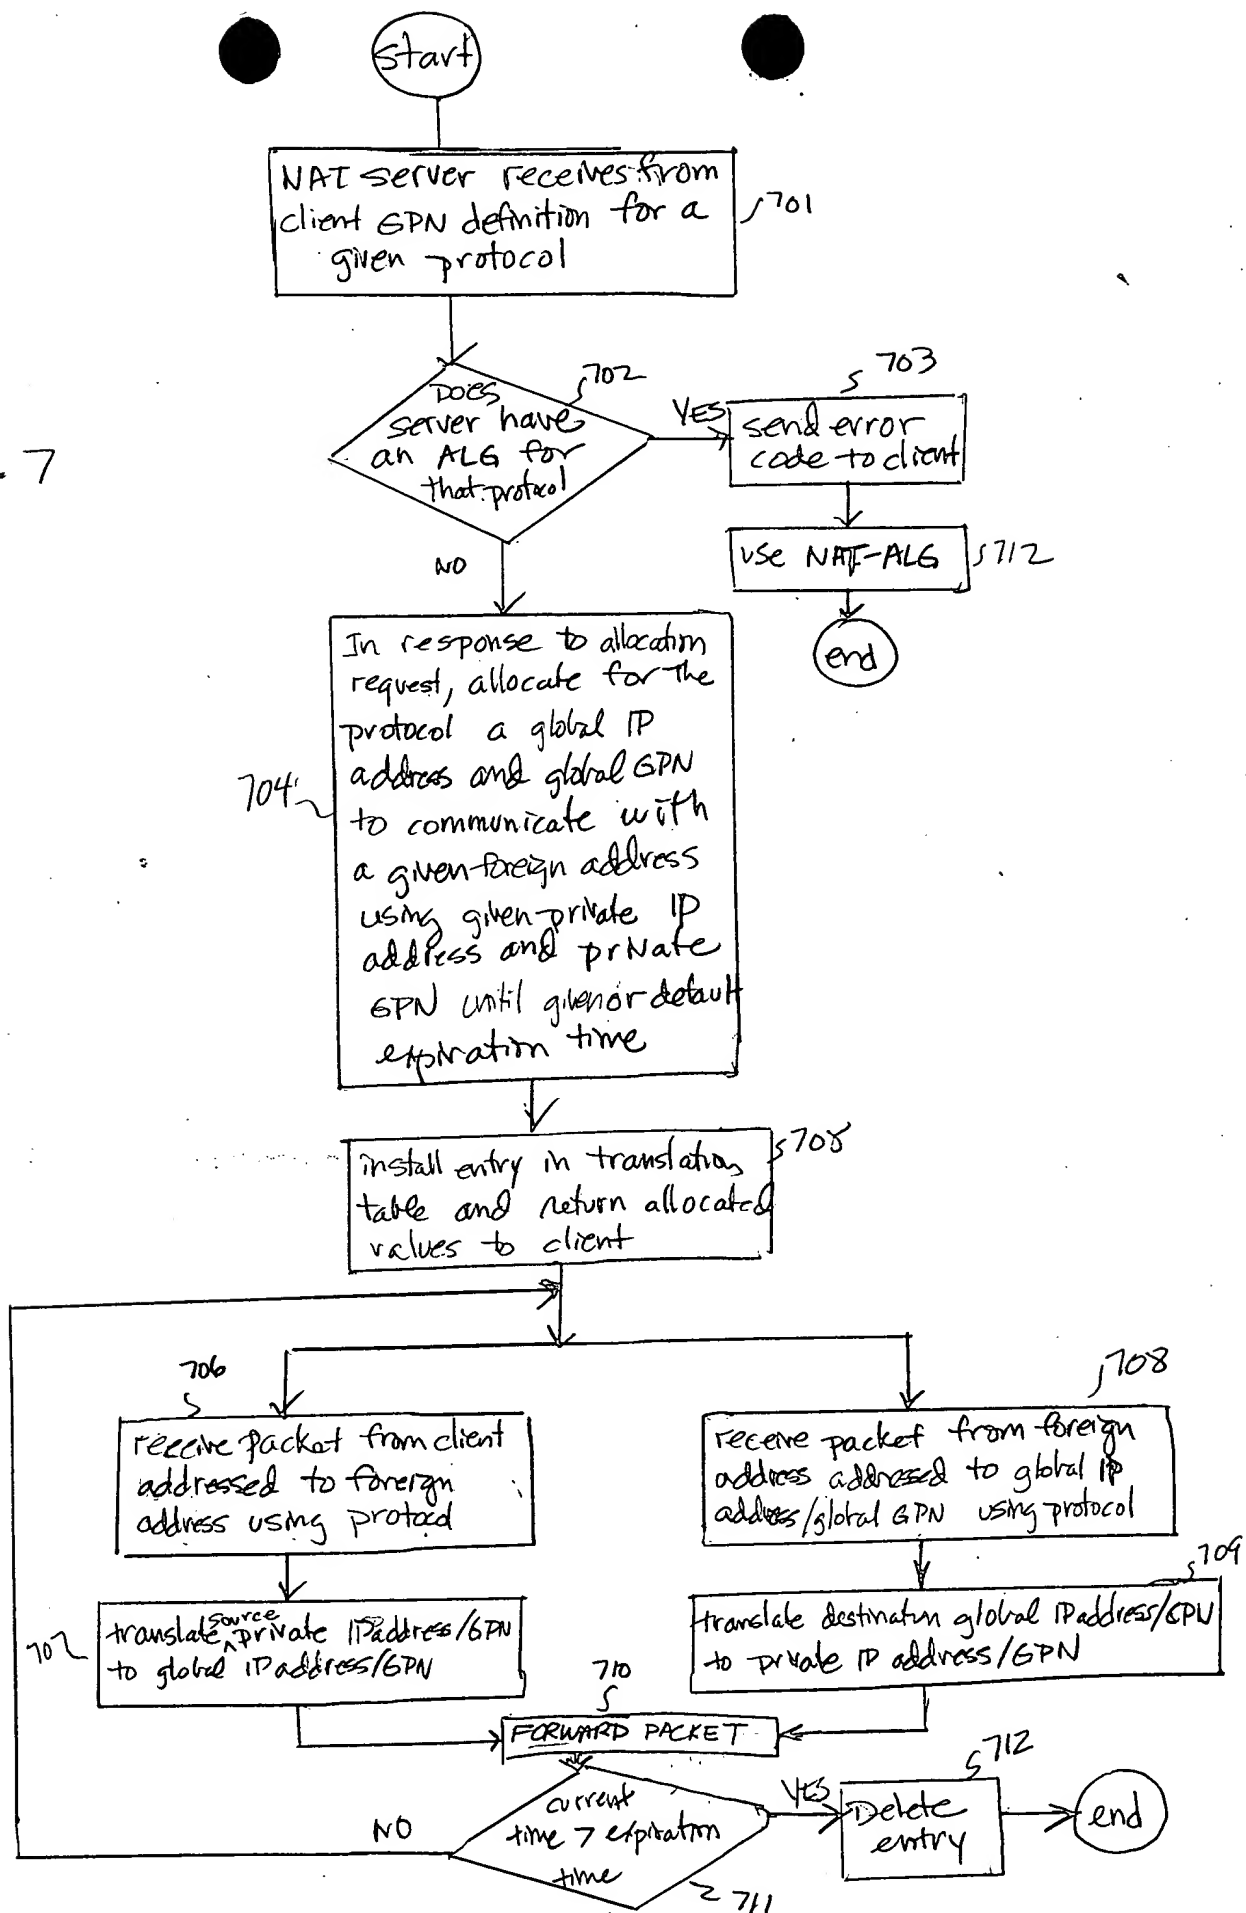 start
NAT server receives from
client GPN definition for a
given protocol
701
702
Does
server have
an ALG for
that protocol
YES
703
send error
code to client
use NAT-ALG
712
end
. 7
NO
In response to allocation
request, allocate for the
protocol a global IP
address and global GPN
to communicate with
a given foreign address
using given private IP
address and private
GPN until given or default
expiration time
704
install entry in translation
table and return allocated
values to client
705
706
receive packet from client
addressed to foreign
address using protocol
708
receive packet from foreign
address addressed to global IP
address/global GPN using protocol
707
translate source private IP address/GPN
to global IP address/GPN
709
translate destination global IP address/GPN
to private IP address/GPN
710
FORWARD PACKET
current
time > expiration
time
711
NO
YES
712
Delete
entry
end